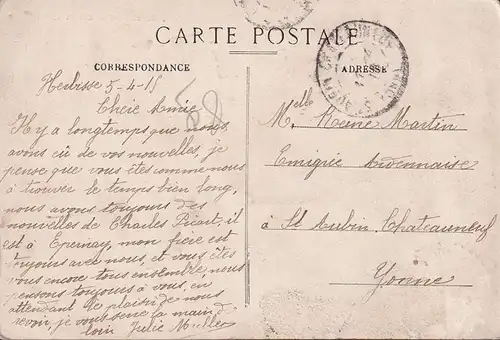 CARTE POSTALE
CORRESPONDANCE
ADRESSE
Herbisse 5-4-15
Chère Amie
Il y a longtemps que nous
avons eû de vos nouvelles, je
pense que vous êtes comme nous
à trouver le temps bien long,
nous avons toujours des
nouvelles de Charles Picart, il
est à Epernay, mon frère est
toujours avec nous, et vous êtes
vous encore tous ensemble, nous
pensons toujours à vous, en
attendant le plaisir de nous
revoir, je vous serre la main de
loin Julie Muller
58
Melle
M. Reine Martin
Emigrée Ardennaise
à St Aubin Chateauneuf
Yonne